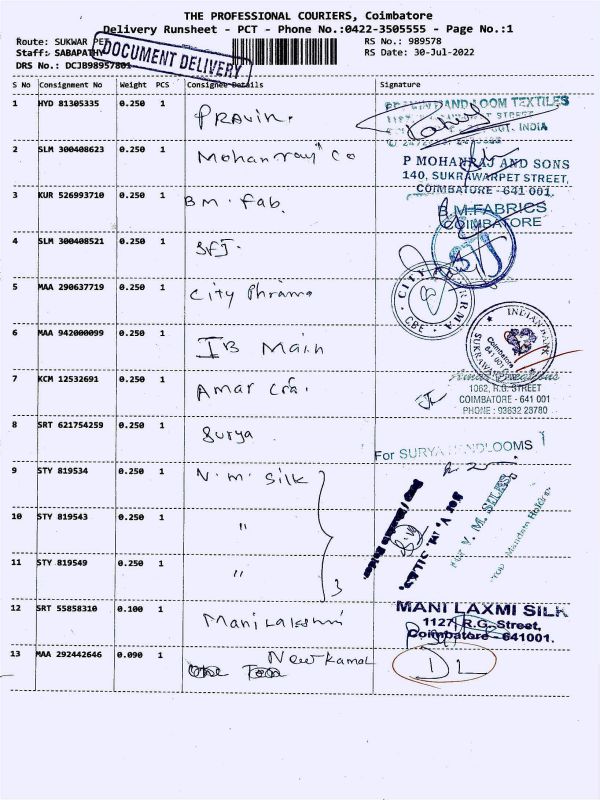 THE PROFESSIONAL COURIERS, Coimbatore
Delivery Runsheet - PCT - Phone No.:0422-3505555 - Page No.:1
Route: SUKWAR PET
RS No.: 989578
Staff: SABAPATHY
RS Date: 30-Jul-2022
DRS No.: DCJB98957801
DOCUMENT DELIVERY
S No Consignment No Weight PCS Consignee Details Signature
1 HYD 81305335 0.250 1 Pravin.
HANDLOOM TEXTILES
STREET
INDIA
2 SLM 300408623 0.250 1 Mohanraj Co
P MOHANRAJ AND SONS
140, SUKRAWARPET STREET,
COIMBATORE - 641 001.
3 KUR 526993710 0.250 1 B.m. Fab.
B.M.FABRICS
COIMBATORE
4 SLM 300408521 0.250 1
5 MAA 290637719 0.250 1 City Phrama
CITY PHARMA
CBE
6 MAA 942000099 0.250 1 IB Main
INDIAN BANK
SUKRAWAR
Coimbatore
641 001
7 KCM 12532691 0.250 1 Amar Cra.
1062, R.G. STREET
COIMBATORE - 641 001
PHONE : 93632 23780
8 SRT 621754259 0.250 1 Surya
For SURYA HANDLOOMS
9 STY 819534 0.250 1 N.m. Silk
10 STY 819543 0.250 1 "
11 STY 819549 0.250 1 "
3
for V. M. SILKS,
For V. M. SILKS
12 SRT 55858310 0.100 1 Mani Lakshmi
MANI LAXMI SILK
1127, R.G. Street,
Coimbatore - 641001.
13 MAA 292442646 0.090 1 New Kamal
DL